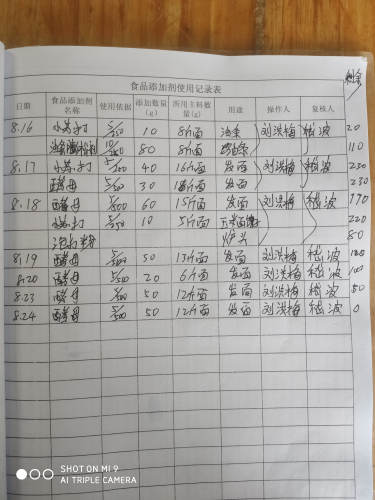 剩余
食品添加剂使用记录表
日期 食品添加剂名称 使用依据 添加数量(g) 所用主料数量(g) 用途 操作人 复核人
8.16 小苏打 5/500 10 8斤面 油条 刘洪梅 程波 20
80 8斤面 油条 110
8.17 小苏打 40 16斤面 发面 刘洪梅 程波 230
酵母 5/500 30 发面 230
8.18 酵母 5/500 60 15斤面 发面 刘洪梅 程波 170
小苏打 5/500 10 5斤面 220
泡打粉 炉头 80
8.19 酵母 5/500 50 13斤面 发面 刘洪梅 程波
8.20 酵母 5/500 20 6斤面 发面 刘洪梅 程波 100
8.23 酵母 5/500 50 12斤面 发面 刘洪梅 程波 50
8.24 酵母 5/500 50 12斤面 发面 刘洪梅 程波 0
SHOT ON MI 9
AI TRIPLE CAMERA